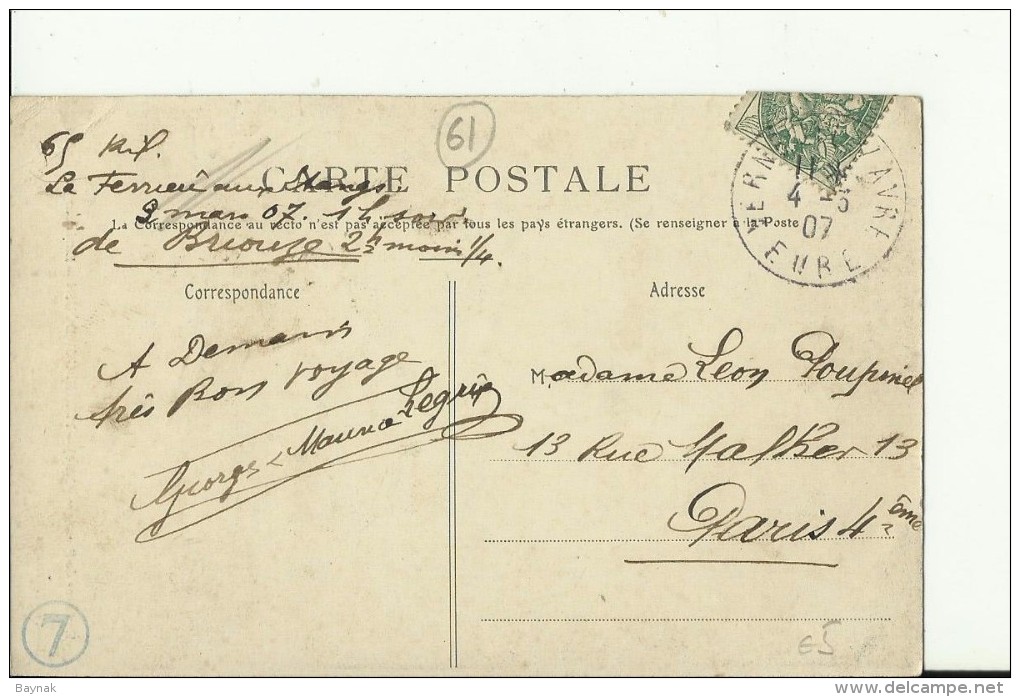 61
65 Kil.
La Ferrière aux Etangs
CARTE POSTALE
3 mars 07. 1 h. soir
La Correspondance au recto n'est pas acceptée par tous les pays étrangers. (Se renseigner à la Poste
de Briouze 2h moins 1/4.
11
4 - 3
07
EURE
Correspondance
Adresse
A Demain
très Bon voyage
Georges Maurice
Madame Leon Poupinel
13 Rue Malher 13
Paris 4ème
7
€5
Baynak
delcampe.net